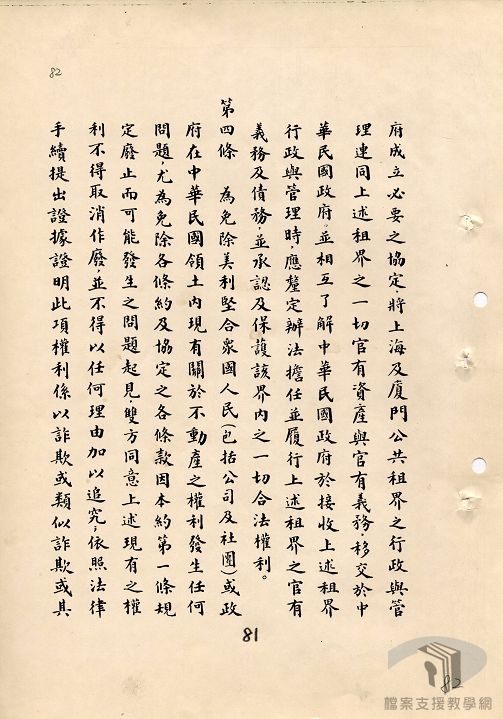 82
府成立必要之協定將上海及廈門公共租界之行政與管
理連同上述租界之一切官有資產與官有義務，移交於中
華民國政府，並相互了解中華民國政府於接收上述租界
行政與管理時，應釐定辦法擔任並履行上述租界之官有
義務及債務，並承認及保護該界內之一切合法權利。
第四條　為免除美利堅合眾國人民（包括公司及社團）或政
府在中華民國領土內現有關於不動產之權利發生任何
問題，尤為免除各條約及協定之各條款因本約第一條規
定廢止而可能發生之問題起見，雙方同意上述現有之權
利不得取消作廢，並不得以任何理由加以追究，依照法律
手續提出證據證明此項權利係以詐欺或類似詐欺或其
81
82
檔案支援教學網